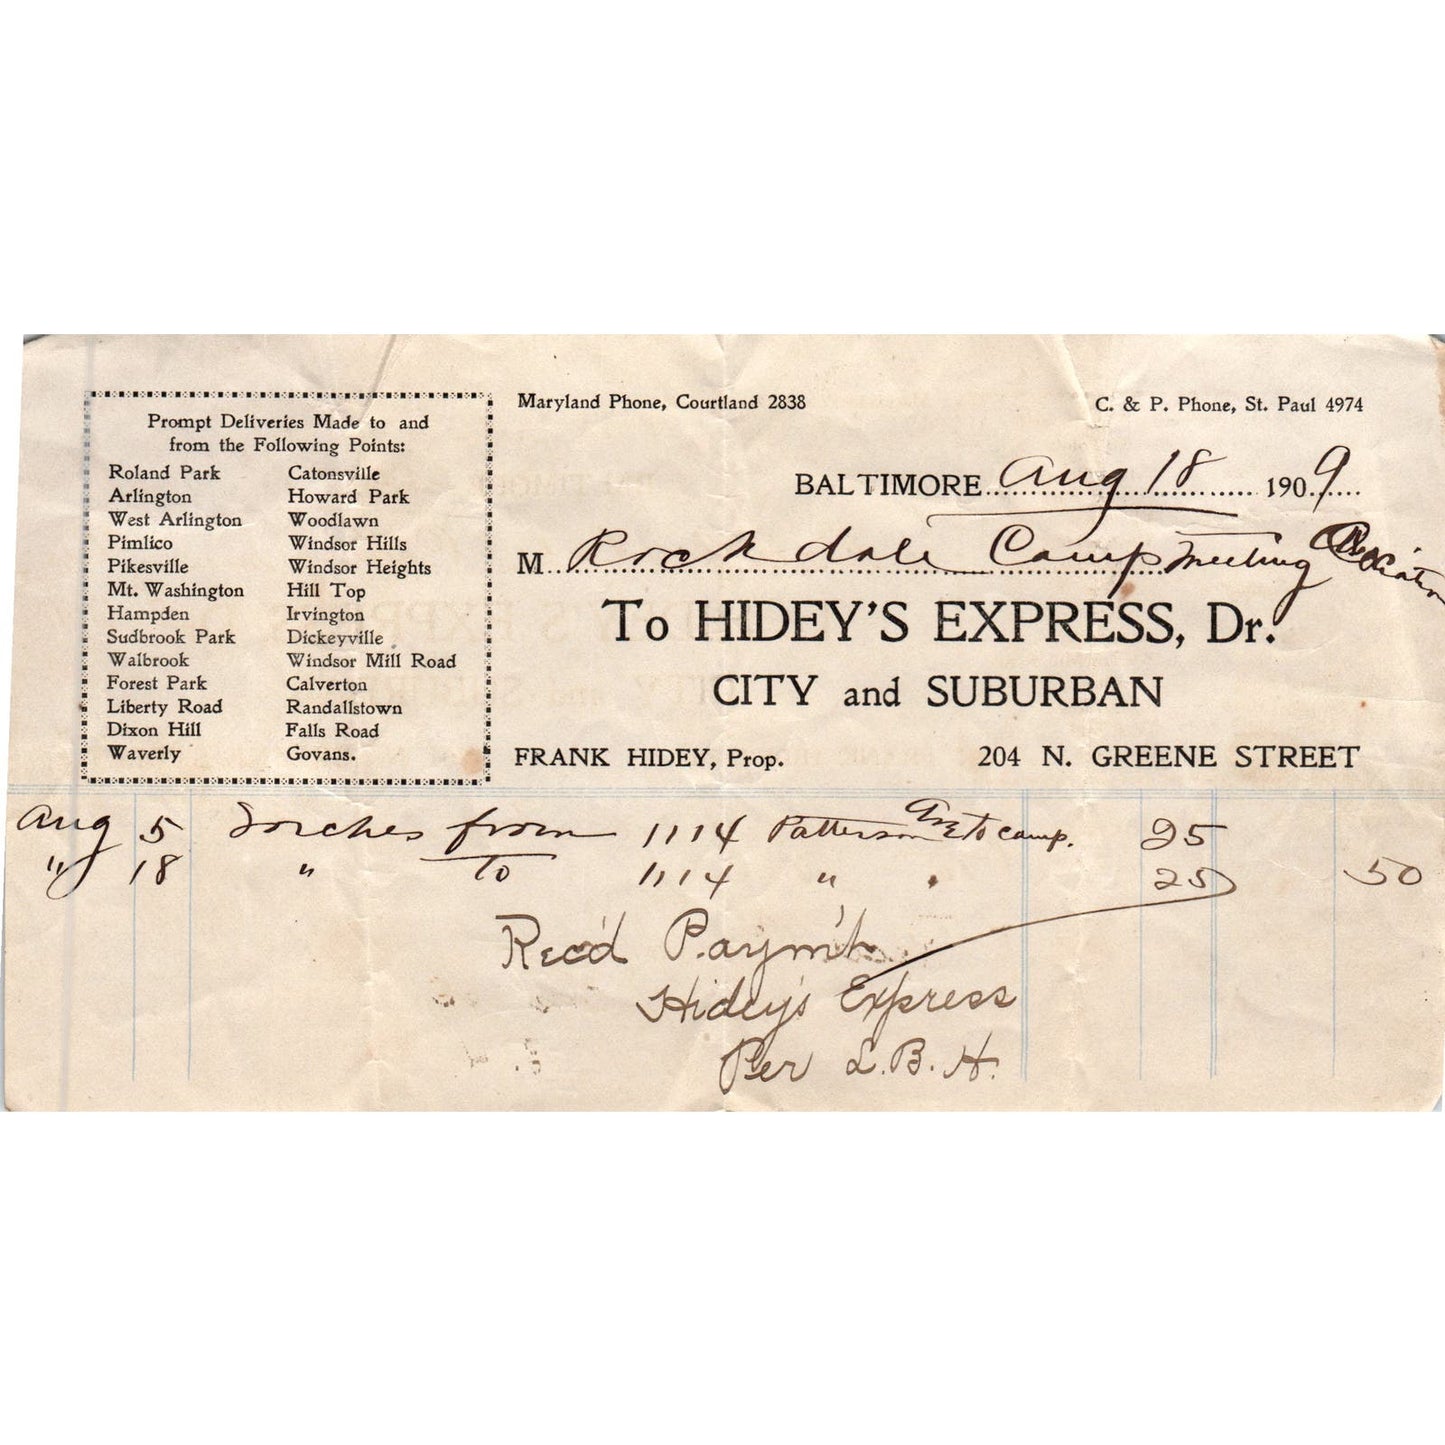 Prompt Deliveries Made to and
from the Following Points:
Roland Park
Arlington
West Arlington
Pimlico
Pikesville
Mt. Washington
Hampden
Sudbrook Park
Walbrook
Forest Park
Liberty Road
Dixon Hill
Waverly
Catonsville
Howard Park
Woodlawn
Windsor Hills
Windsor Heights
Hill Top
Irvington
Dickeyville
Windsor Mill Road
Calverton
Randallstown
Falls Road
Govans.
Maryland Phone, Courtland 2838
C. & P. Phone, St. Paul 4974
BALTIMORE Aug 18 1909
M Rockdale Camp Meeting
To HIDEY'S EXPRESS, Dr.
CITY and SUBURBAN
FRANK HIDEY, Prop.
204 N. GREENE STREET
Aug 5 Torches from 1114 Patterson Ave to camp. 25
" 18 " To 1114 " . 25 50
Rec'd Paym't
Hidey's Express
Per L.B.H.